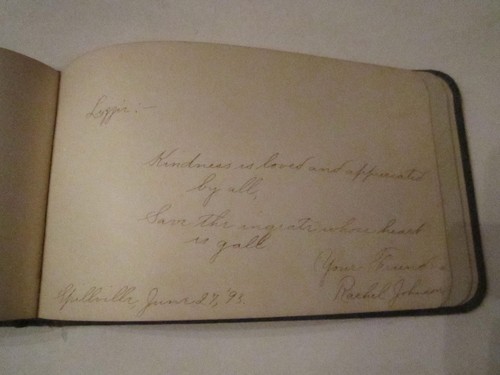 Lizzie :—
Kindness is loved and appreciated
by all,
Save the ingrate whose heart
is gall
Your Friend
Rachel Johnson
Spillville, June 27, '93.